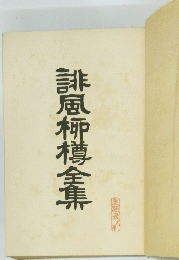 誹風柳樽全集